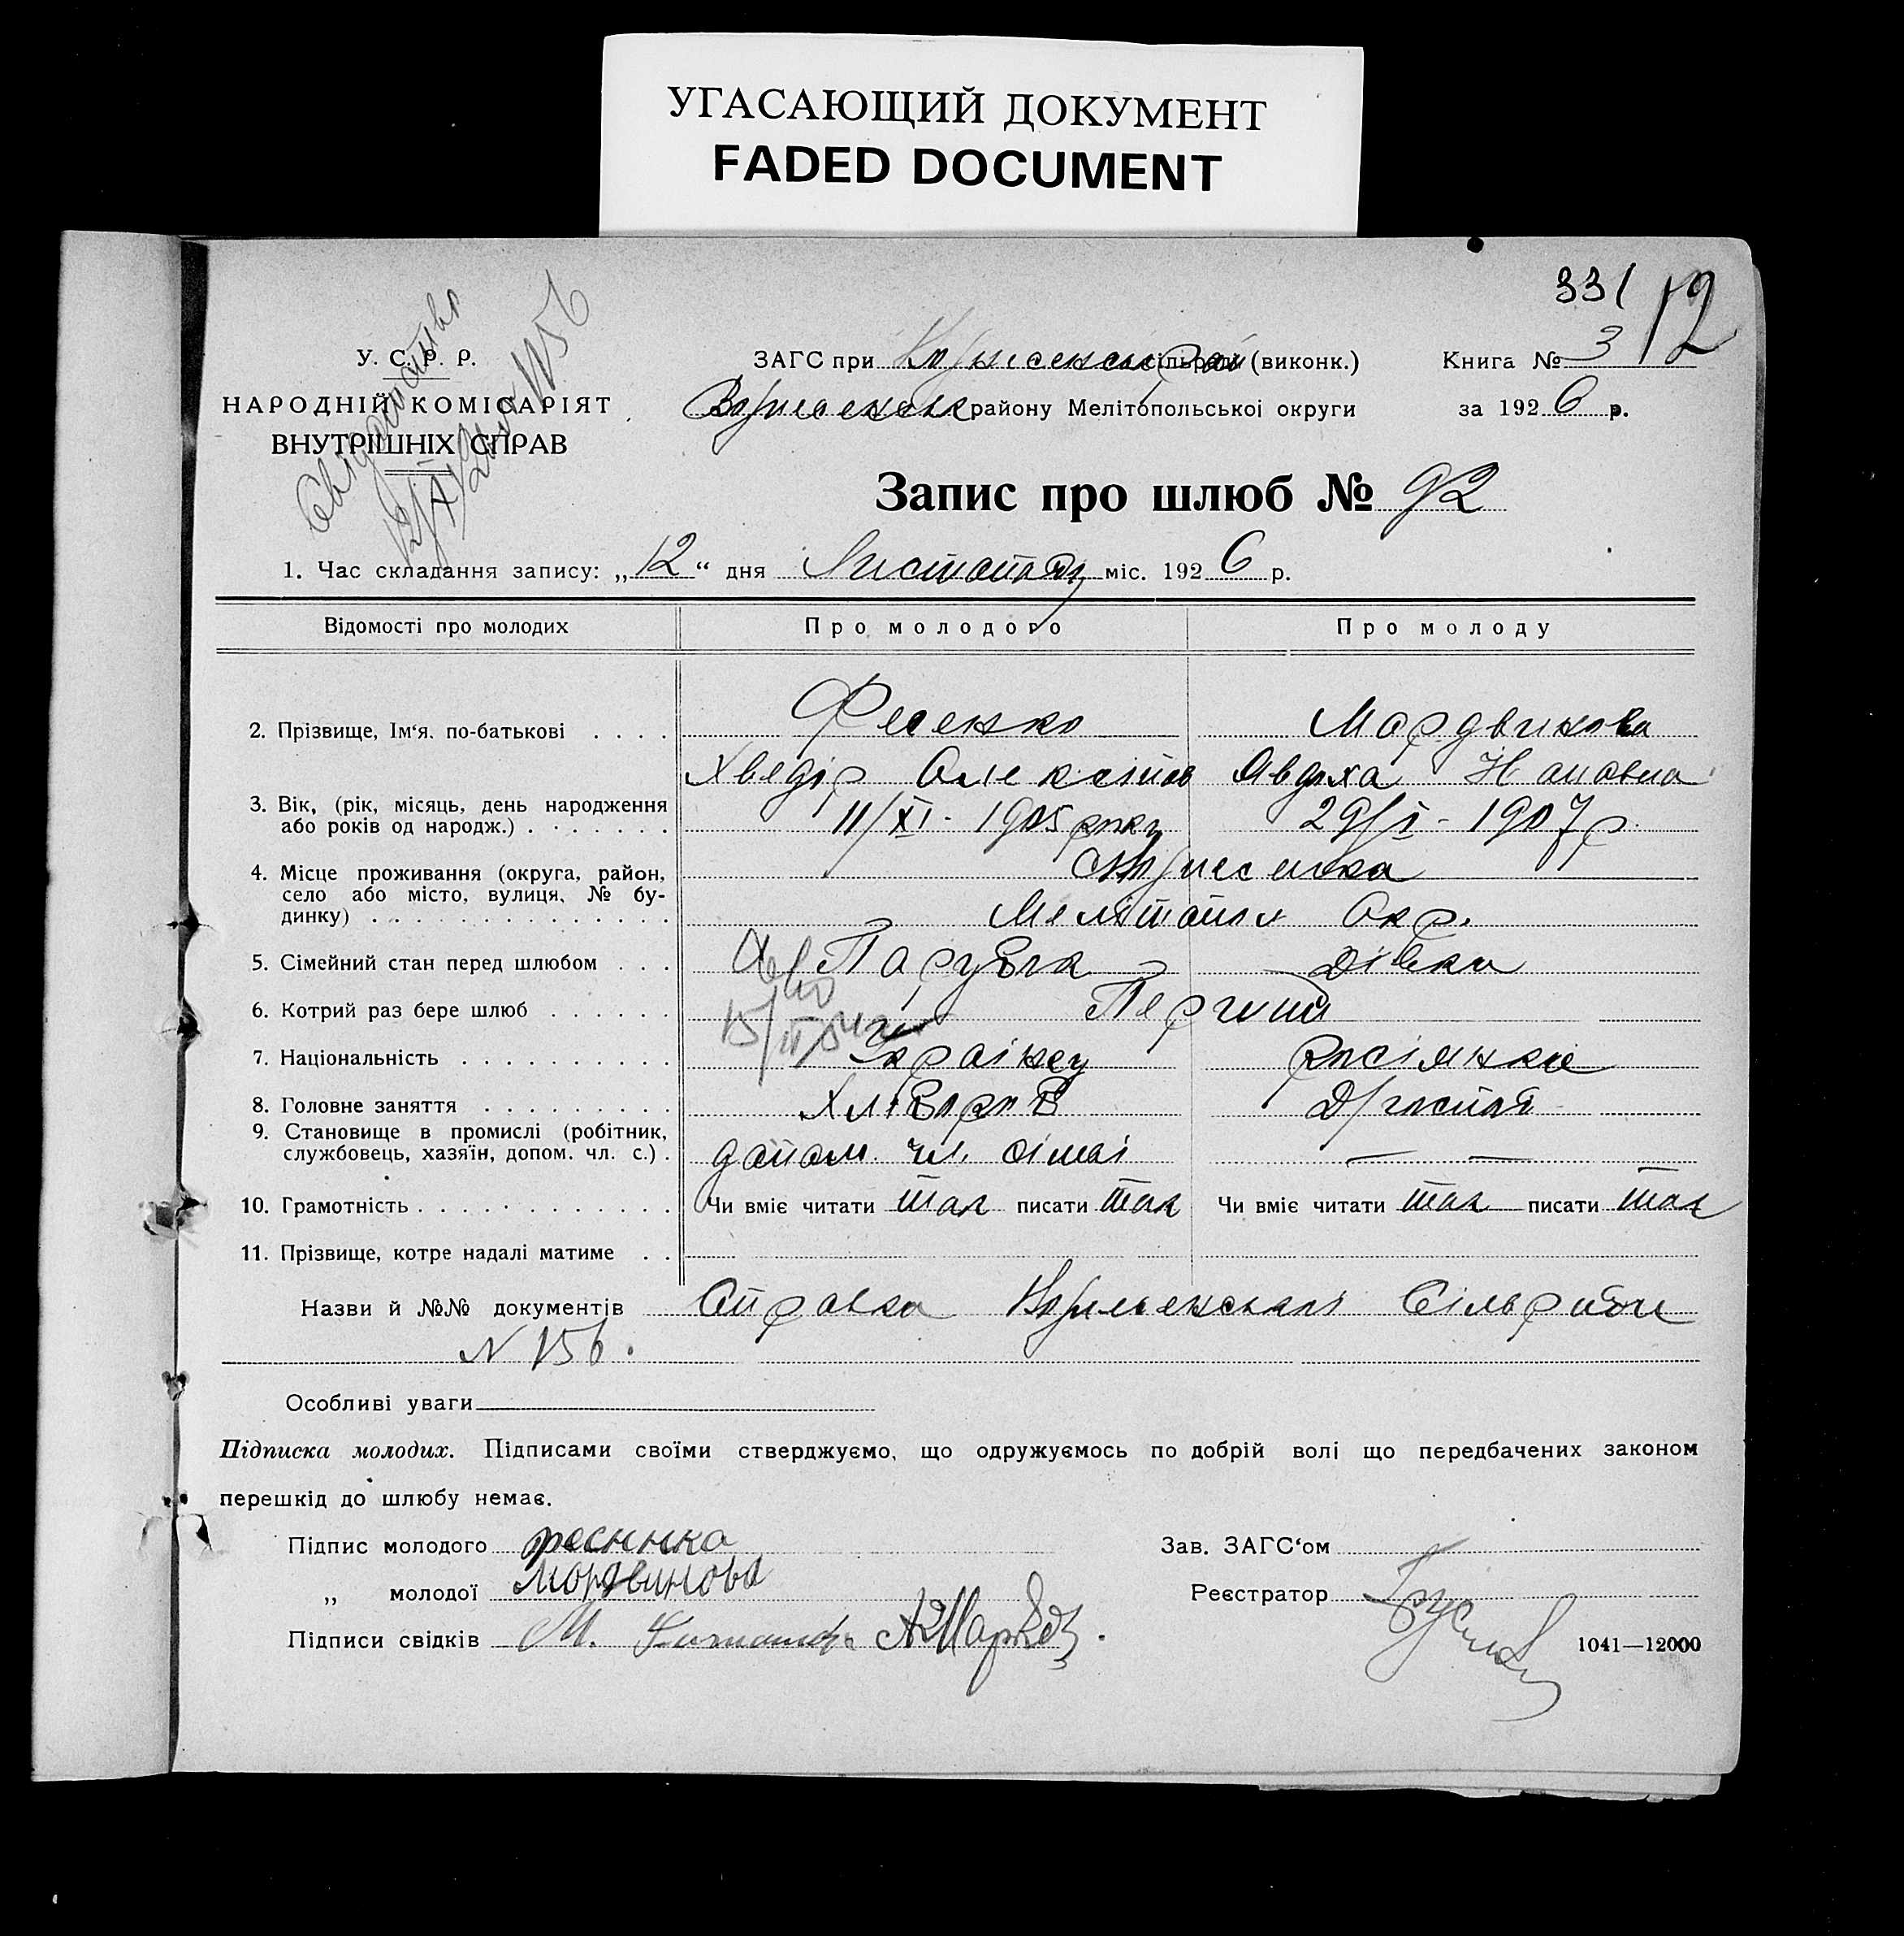 УГАСАЮЩИЙ ДОКУМЕНТ
FADED DOCUMENT
331 12
У. С. Р. Р.
НАРОДНІЙ КОМІСАРІЯТ
ВНУТРІШНІХ СПРАВ
ЗАГС при сільраді (виконк.) Книга № 3
району Мелітопольської округи за 1926 р.
Запис про шлюб № 92
1. Час складання запису: „12“ дня Листопаду міс. 1926 р.
Відомості про молодих Про молодого Про молоду
2. Прізвище, Ім‘я. по-батькові Фесенко Мордвинова
Хведір Олексіїв Явдоха
3. Вік, (рік, місяць, день народження
або років од народж.) 11/XI - 1905 року 29/I - 1907 р.
4. Місце проживання (округа, район,
село або місто, вулиця, № бу-
динку) Мелітопол Окр.
5. Сімейний стан перед шлюбом Парубок дівка
6. Котрий раз бере шлюб Перший
7. Національність росіянка
8. Головне заняття Хлібороб
9. Становище в промислі (робітник,
службовець, хазяїн, допом. чл. с.) допом. чл. сімї — —
10. Грамотність Чи вміє читати так писати так Чи вміє читати так писати так
11. Прізвище, котре надалі матиме
Назви й №№ документів Справка Сільради
N 156.
Особливі уваги
Підписка молодих. Підписами своїми стверджуємо, що одружуємось по добрій волі що передбачених законом
перешкід до шлюбу немає.
Підпис молодого Зав. ЗАГС‘ом
„ молодої Мордвинова Реєстратор
Підписи свідків М. 1041—12000